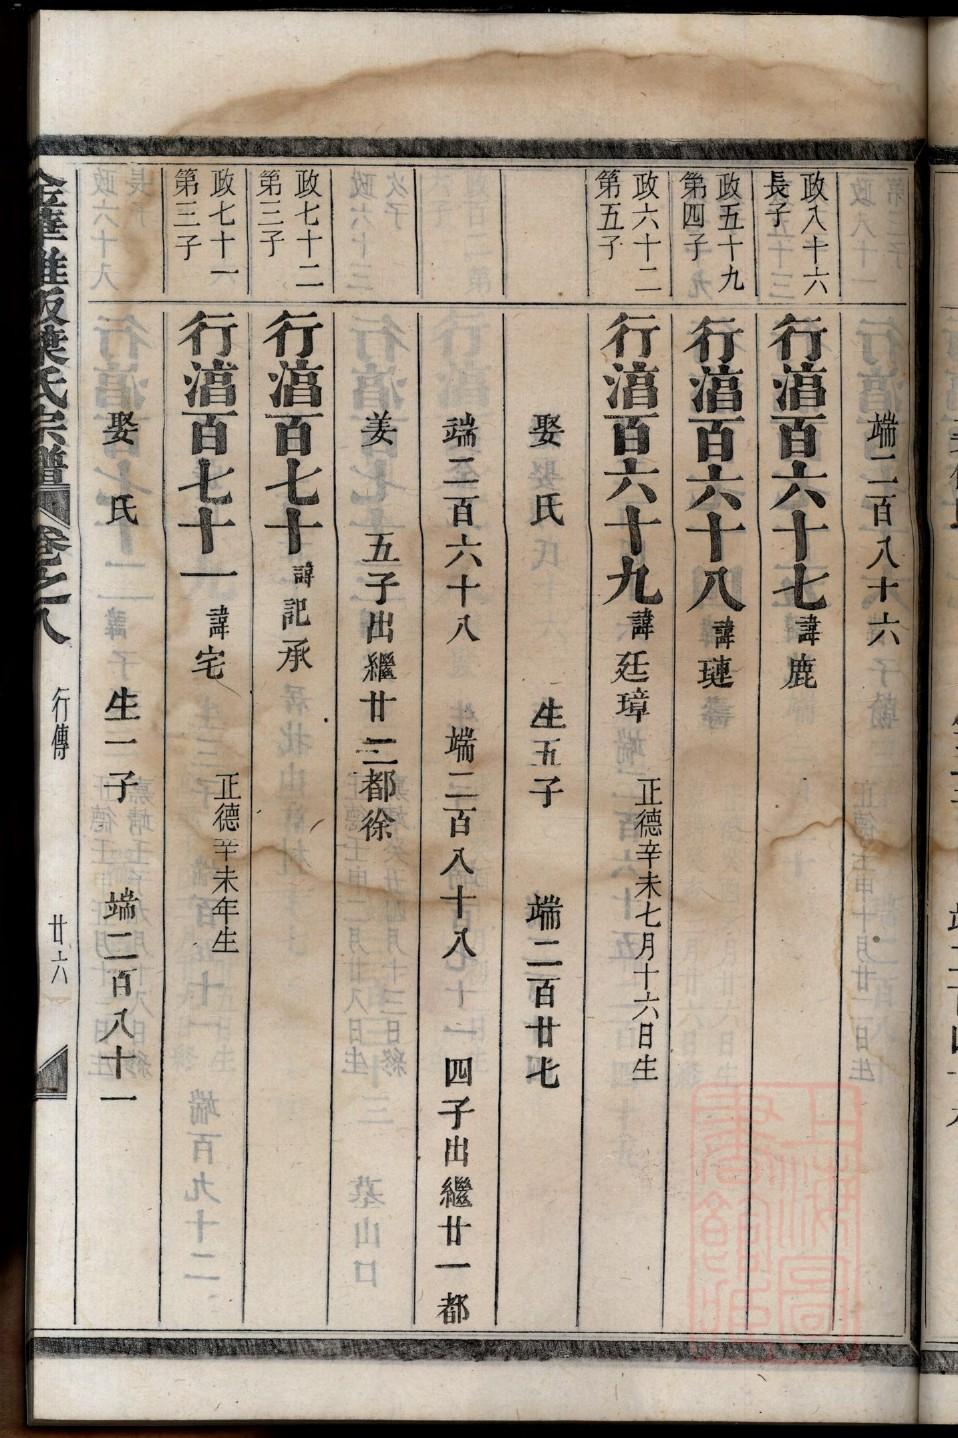 端二百八十六
政八十六
長子
行湇百六十七
諱鹿
政五十九
第四子
行湇百六十八
諱璉
政六十二
第五子
行湇百六十九
諱廷璋
正德辛未七月十六日生
娶 氏 生五子 端二百廿七
端二百六十八 端二百八十八 四子出繼廿一都
姜 五子出繼廿三都徐
政七十二
第三子
行湇百七十
諱記承
政七十一
第三子
行湇百七十一
諱宅
正德辛未年生
娶 氏 生一子 端二百八十一
氏宗譜 卷之八 行傳 廿六